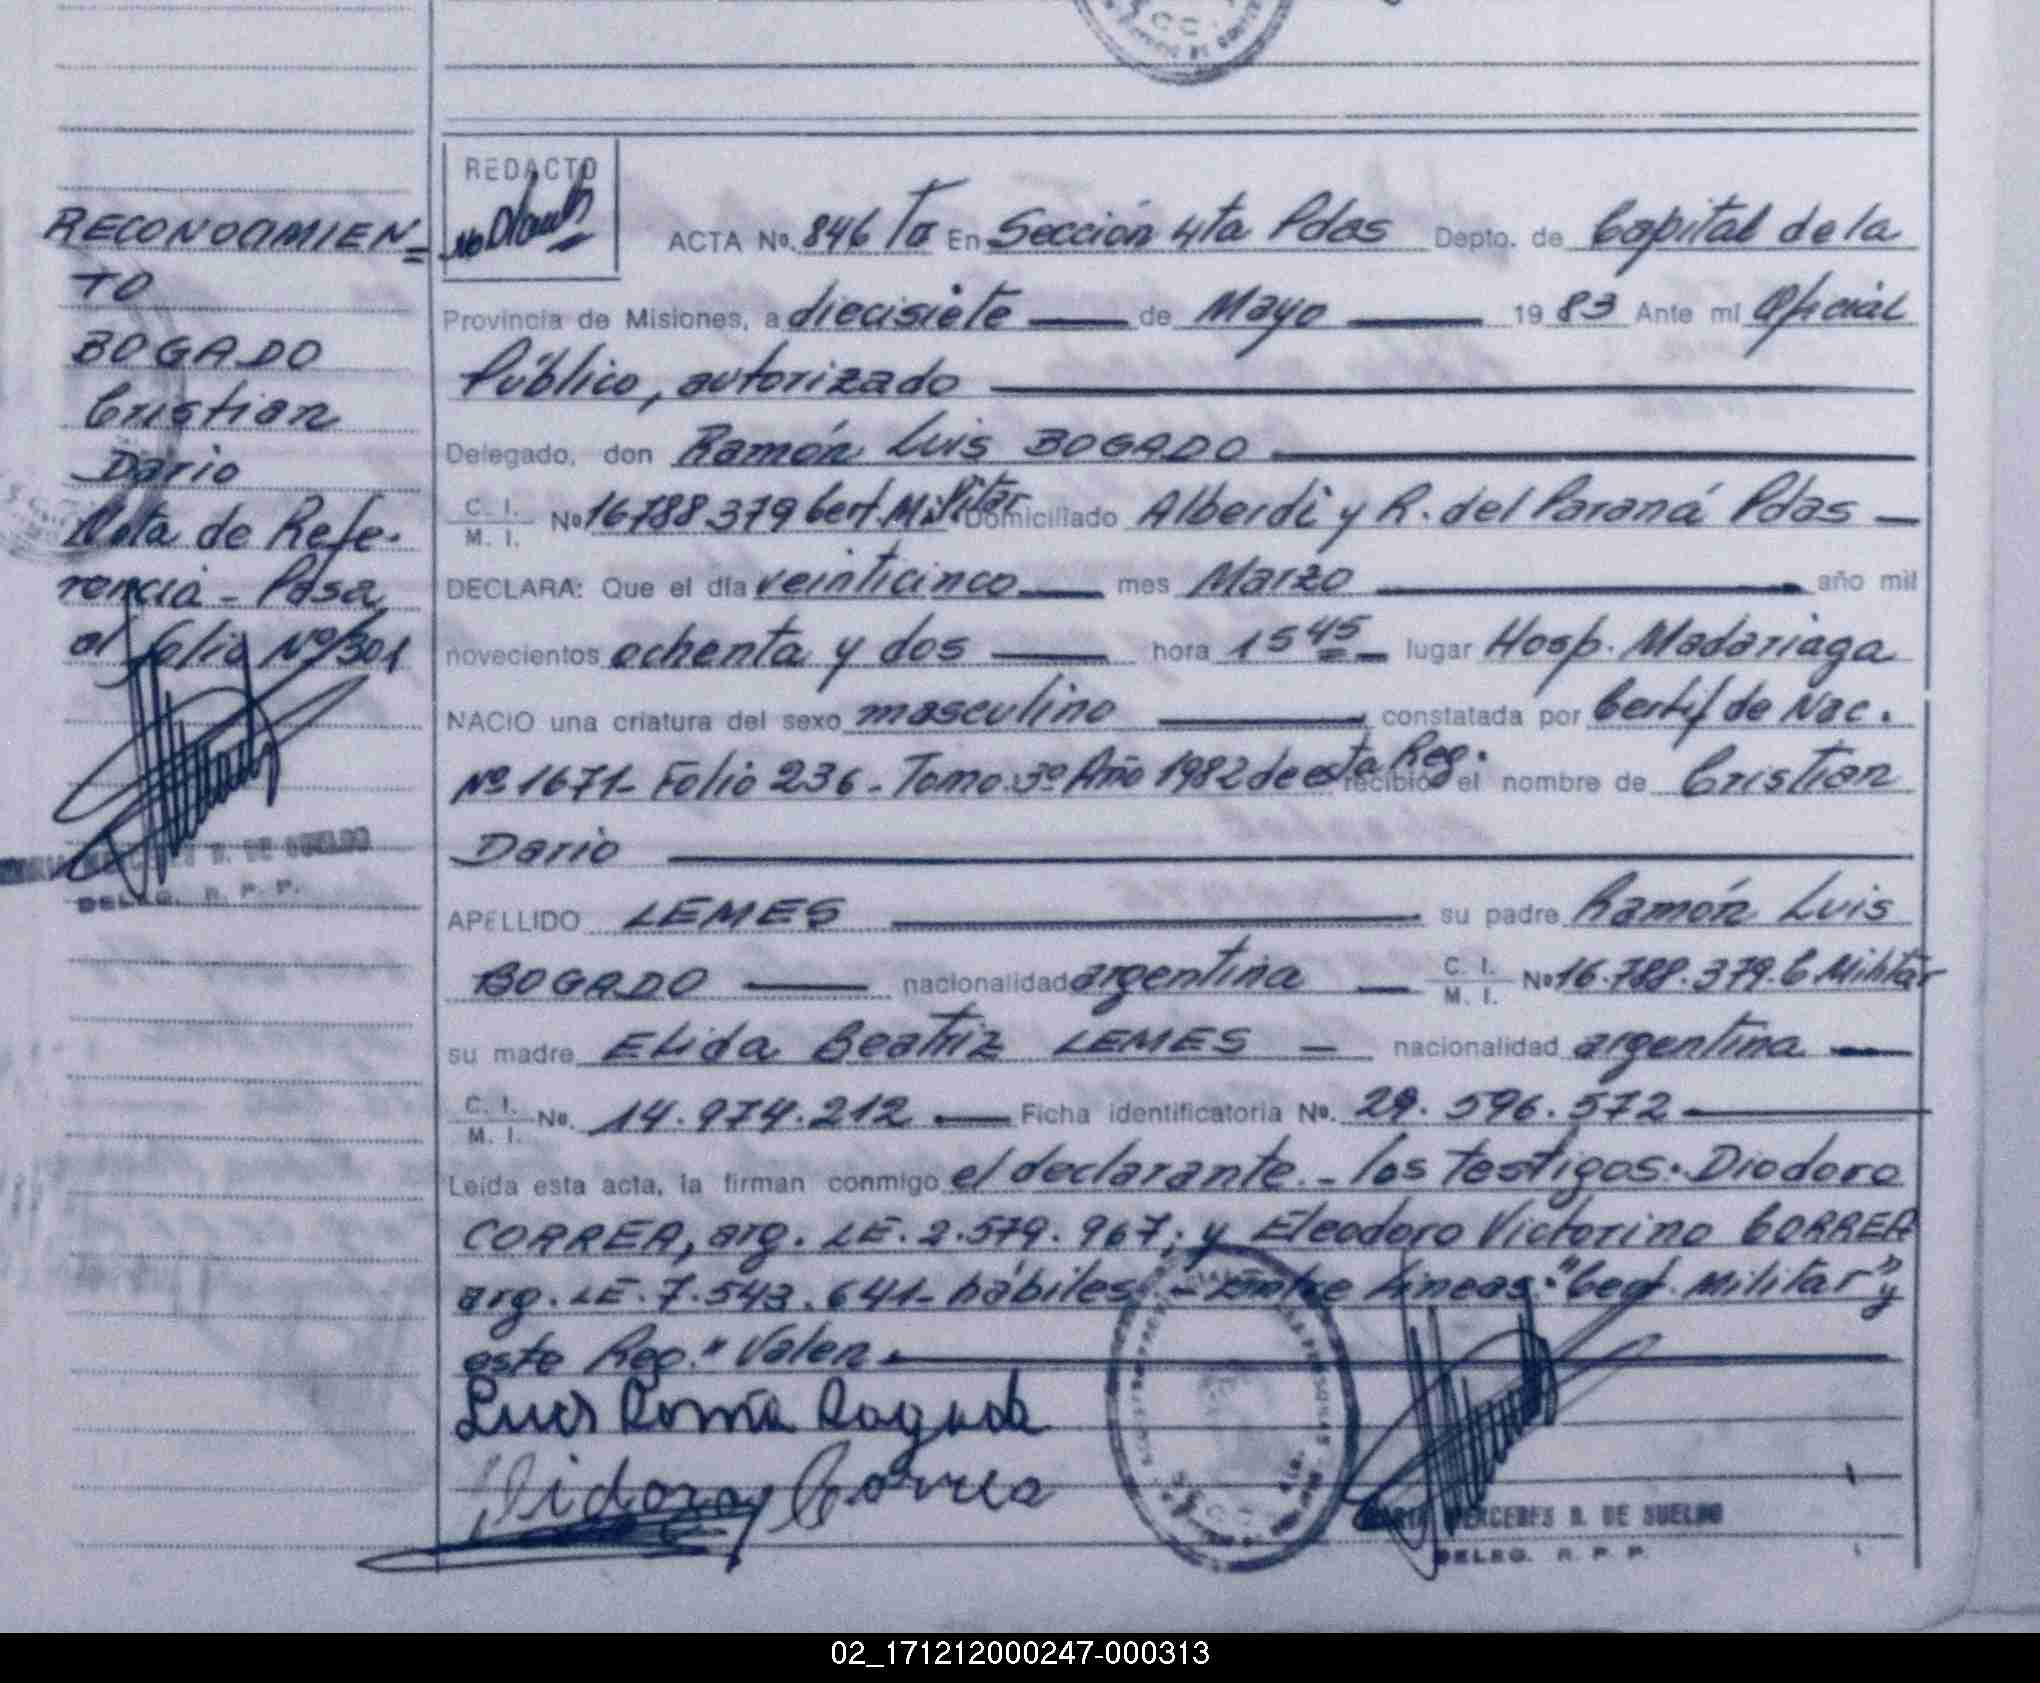 RECONOCIMIEN=
TO
BOGADO
Cristian
Dario
Nota de Refe-
rencia - Pasa
al folio Nº 301
DE SUELDO
DELEG. R. P. P.
REDACTO
ACTA No. 846 Tº En Sección 4ta Pdas Depto. de Capital de la
Provincia de Misiones, a diecisiete de Mayo 1983 Ante mi Oficial
Público, autorizado
Delegado, don Ramón Luis BOGADO
C. I.
M. I. No 16788.379 Cert. Militar Domiciliado Alberdi y R. del Paraná Pdas -
DECLARA: Que el día veinticinco mes Marzo año mil
novecientos ochenta y dos hora 15 45 lugar Hosp. Madariaga
NACIO una criatura del sexo masculino constatada por Certif de Nac.
Nº 1671- Folio 236 - Tomo 3º Año 1982 de esta Reg. recibió el nombre de Cristian
Dario
APELLIDO LEMES su padre Ramón Luis
BOGADO nacionalidad argentina C. I. M. I. No 16.788.379. C Militar
su madre Elida Beatriz LEMES - nacionalidad argentina
C. I.
M. I. No. 14.974.212 Ficha identificatoria No. 29.596.572
Leída esta acta, la firman conmigo el declarante - los testigos: Diodoro
CORREA, arg. LE. 2.579.967; y Eleodoro Victorino CORREA
arg. LE. 7.543.641- hábiles - Entre líneas: "Cert. Militar" y
este Reg." Valen.
Correa
MERCEDES R. DE SUELDO
DELEG. R. P. P.
02_171212000247-000313